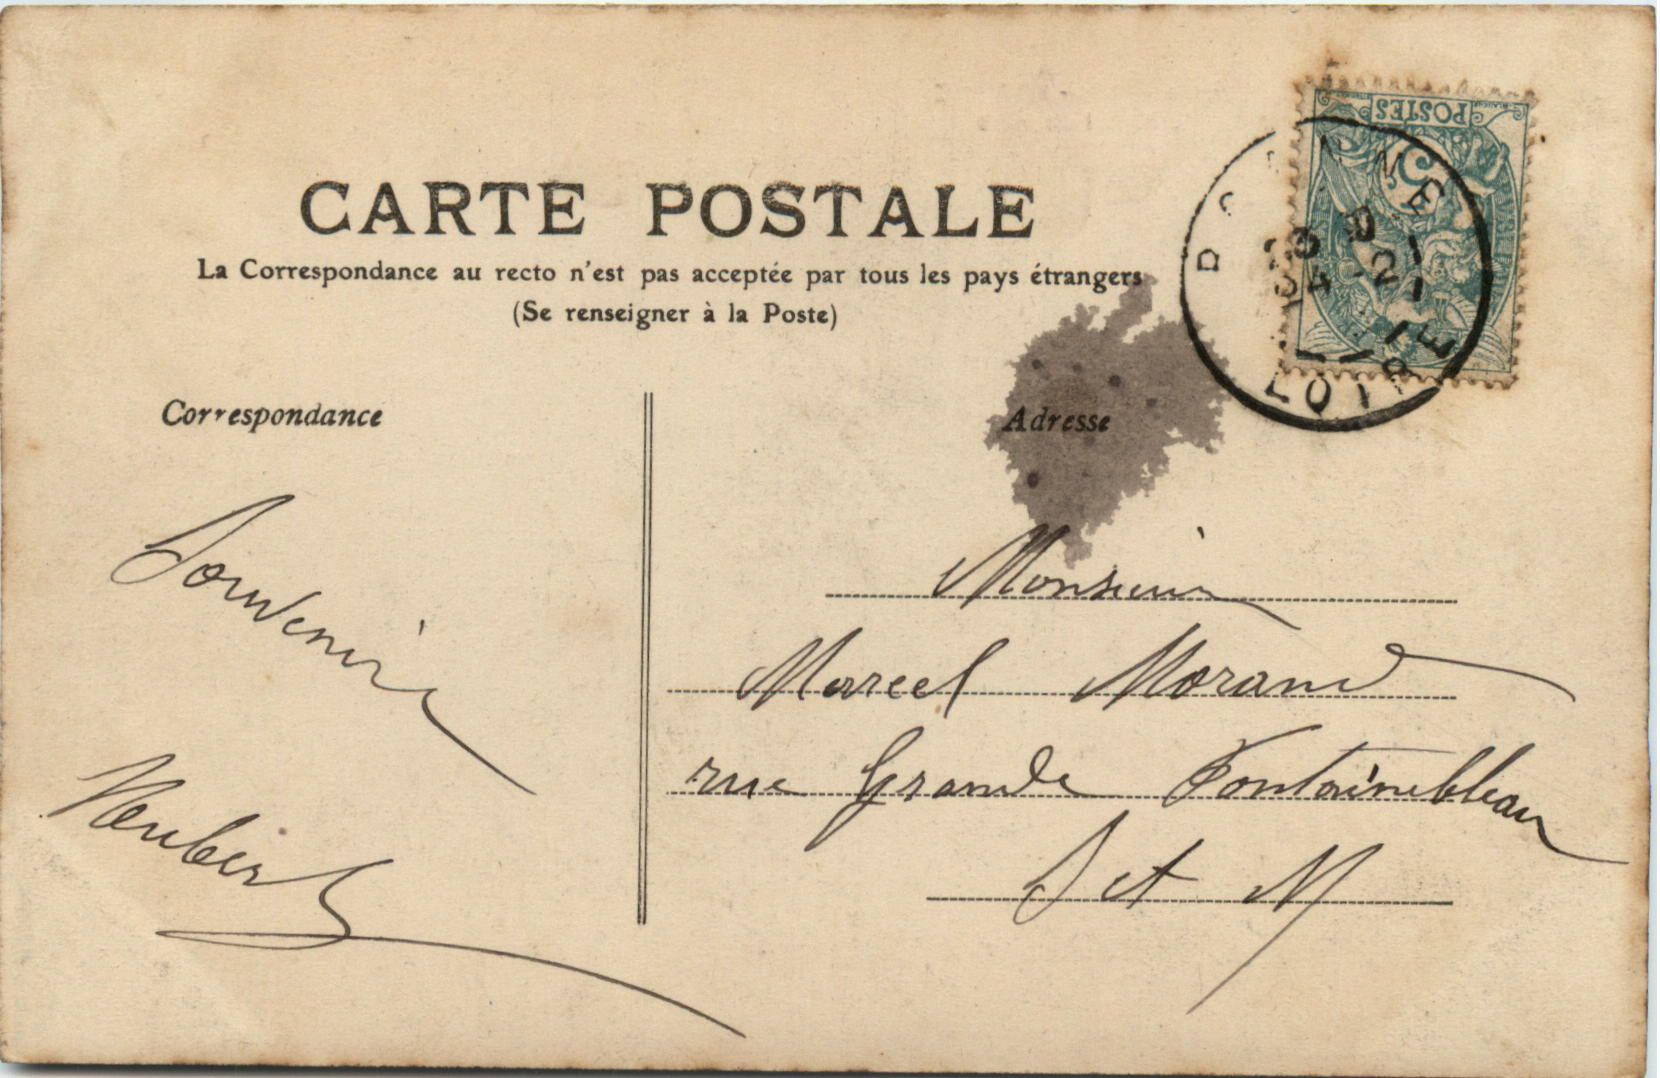 POSTES
5
LOIRE
CARTE POSTALE
La Correspondance au recto n'est pas acceptée par tous les pays étrangers
(Se renseigner à la Poste)
Correspondance
Souvenir
Adresse
Monsieur
Marcel Morand
rue Grande Fontainebleau
S et M